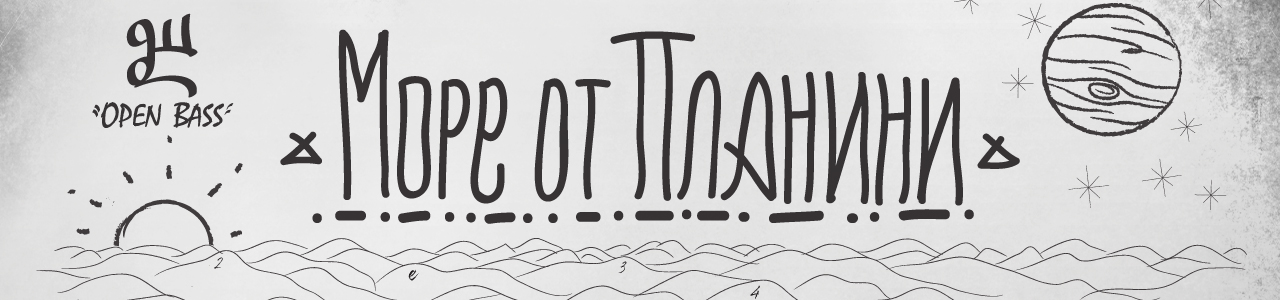 "OPEN BASS"
Море от Планини
2
е
3
4